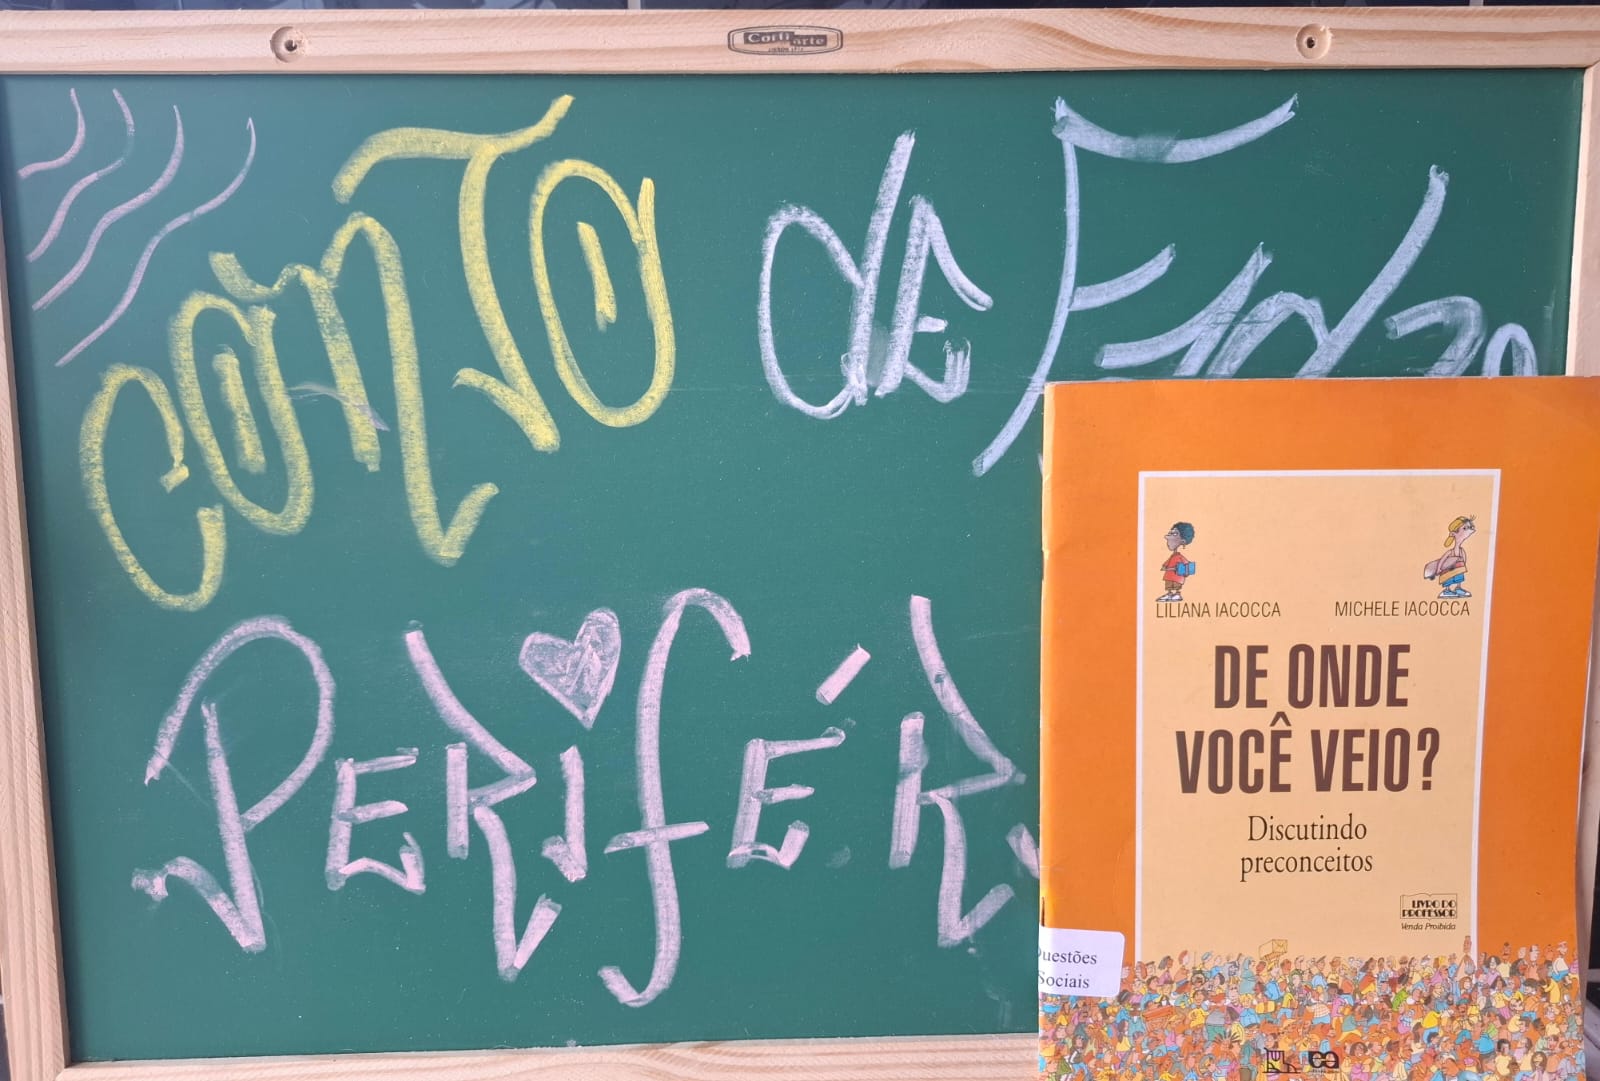 Corti arte
CONTO de
PERIFÉR
LILIANA IACOCCA MICHELE IACOCCA
DE ONDE
VOCÊ VEIO?
Discutindo
preconceitos
LIVRO DO
PROFESSOR
Venda Proibida
Questões
Sociais